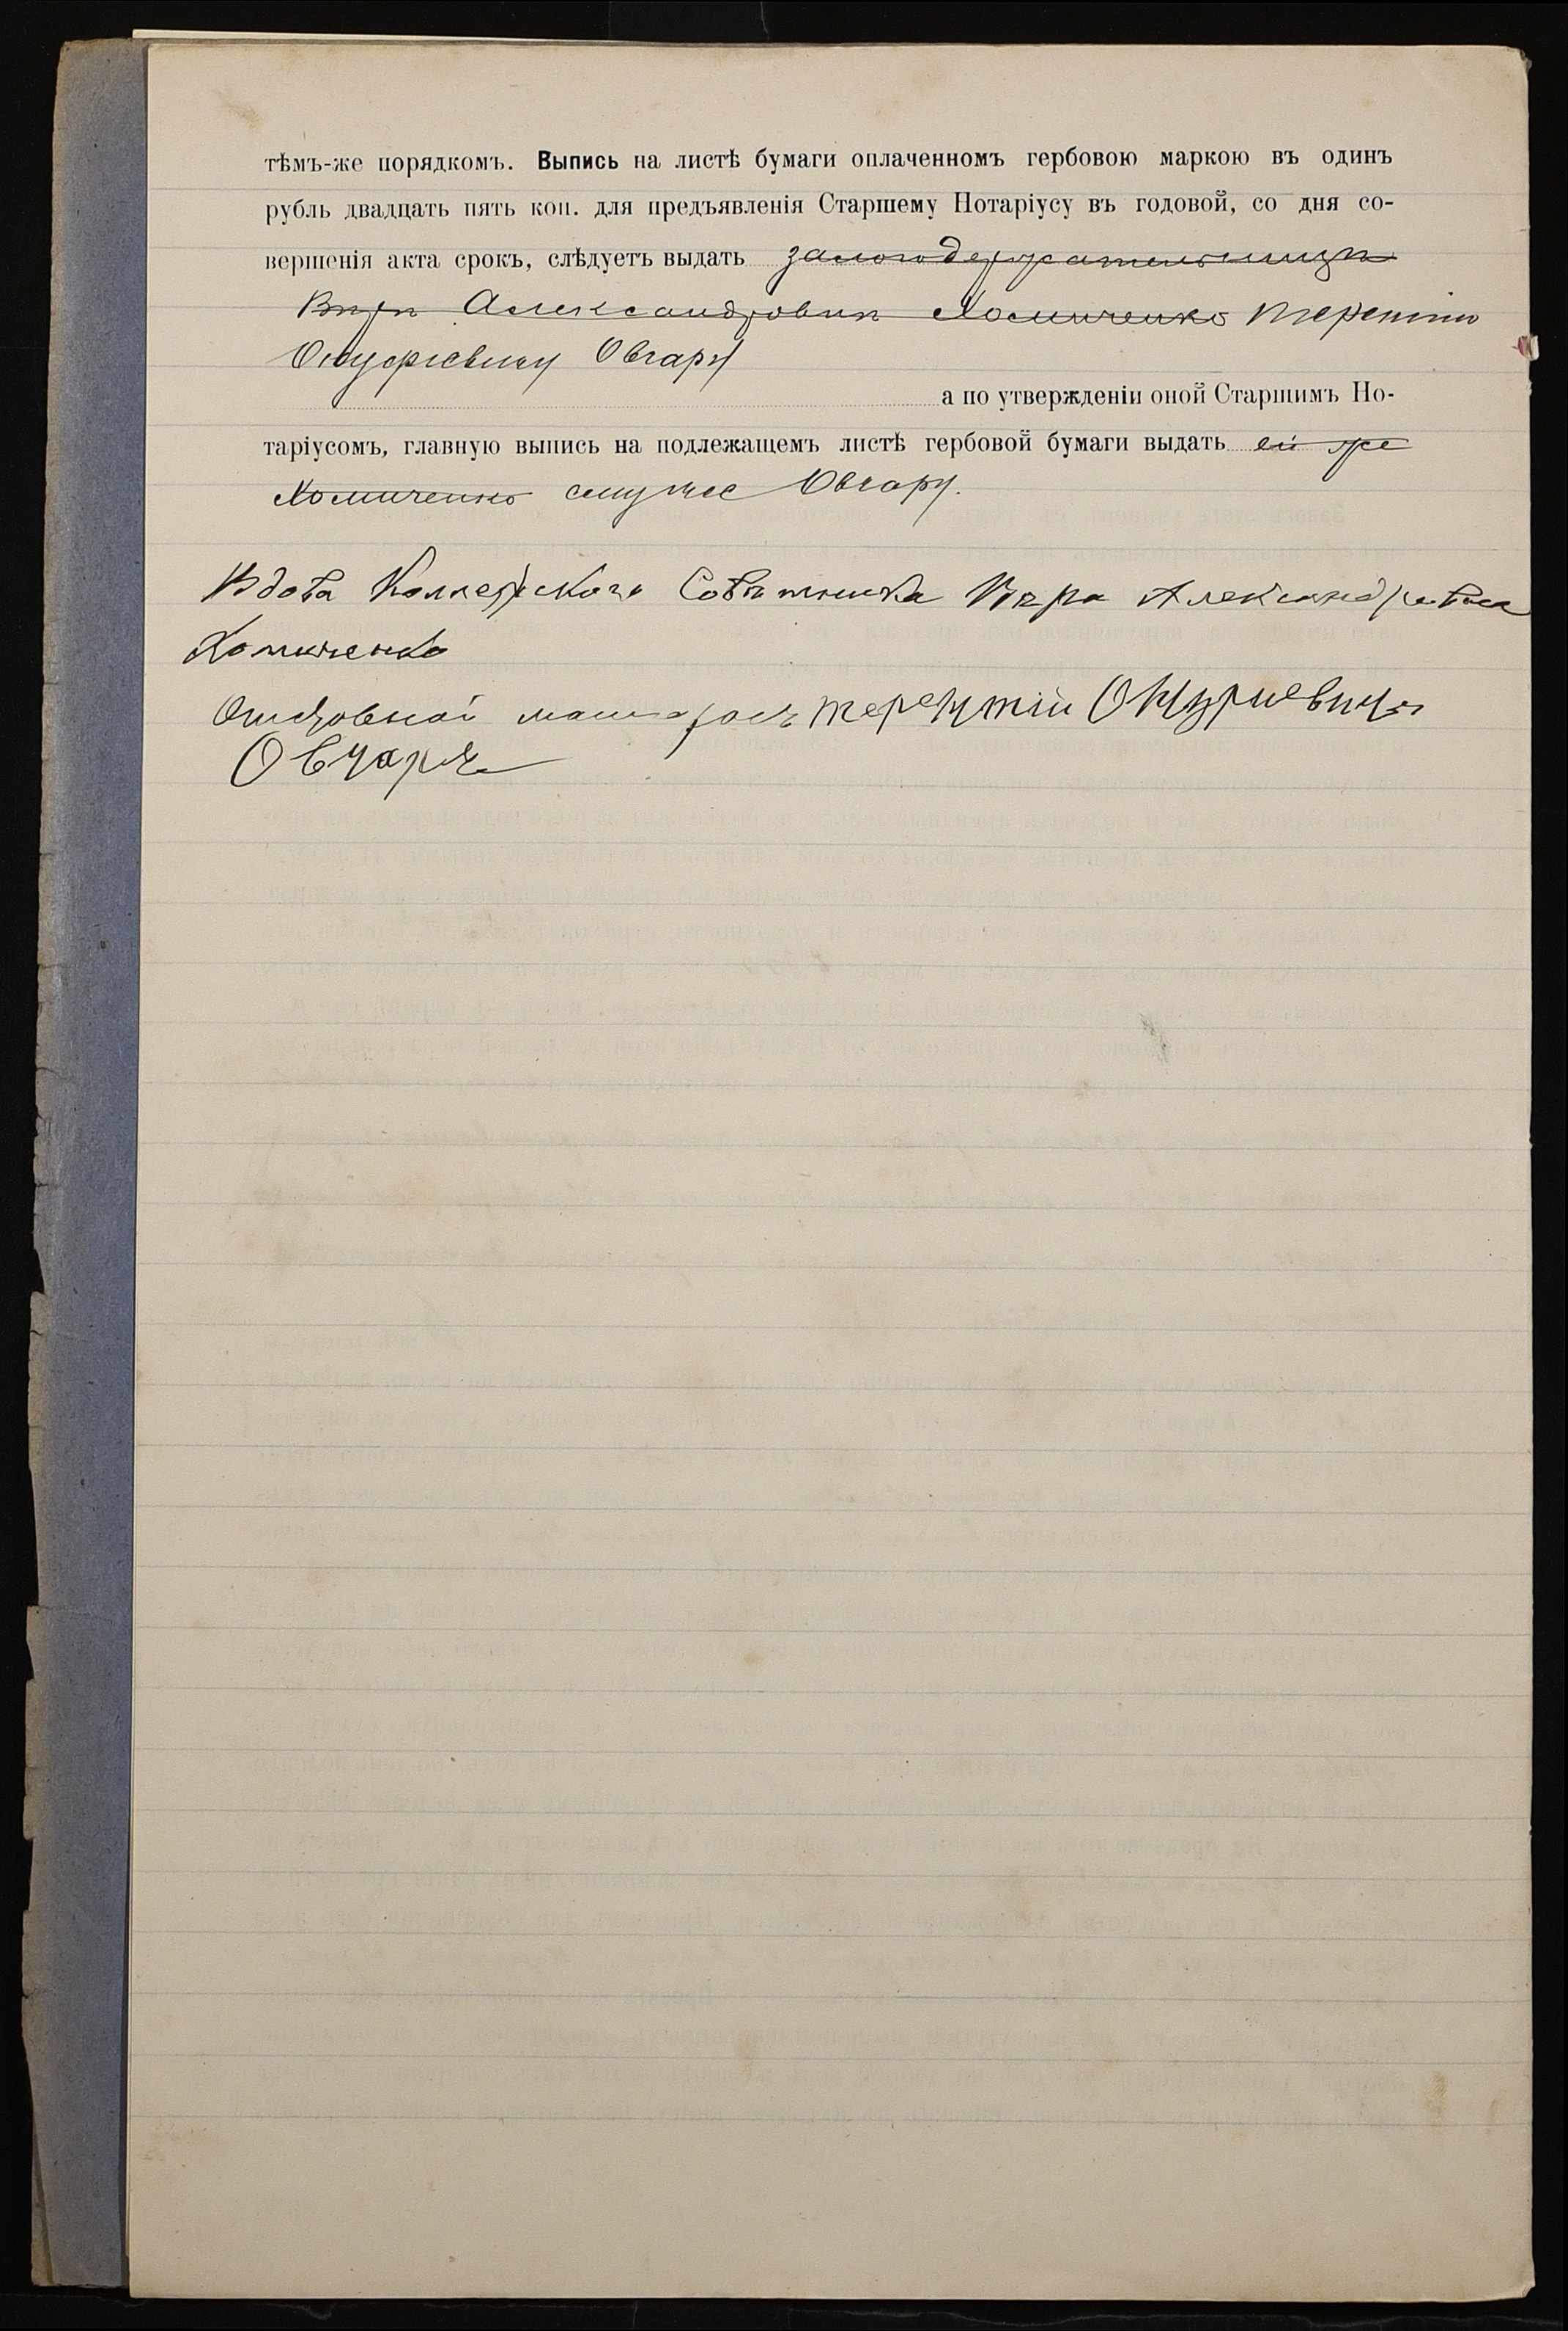 тѣмъ-же порядкомъ. Выпись на листѣ бумаги оплаченномъ гербовою маркою въ одинъ
рубль двадцать пять коп. для предъявленія Старшему Нотаріусу въ годовой, со дня со-
вершенія акта срокъ, слѣдуетъ выдать залогодержательницѣ
Вѣрѣ Александровнѣ Хомиченко Терентію
Онуфріевичу Овчару
а по утвержденіи оной Старшимъ Но-
таріусомъ, главную выпись на подлежащемъ листѣ гербовой бумаги выдать ей же
Хомиченко ему же Овчару.
Вдова Коллежскаго Совѣтника Вѣра Александровна
Хомиченко
Терентій Онуриевичъ
Овчаръ